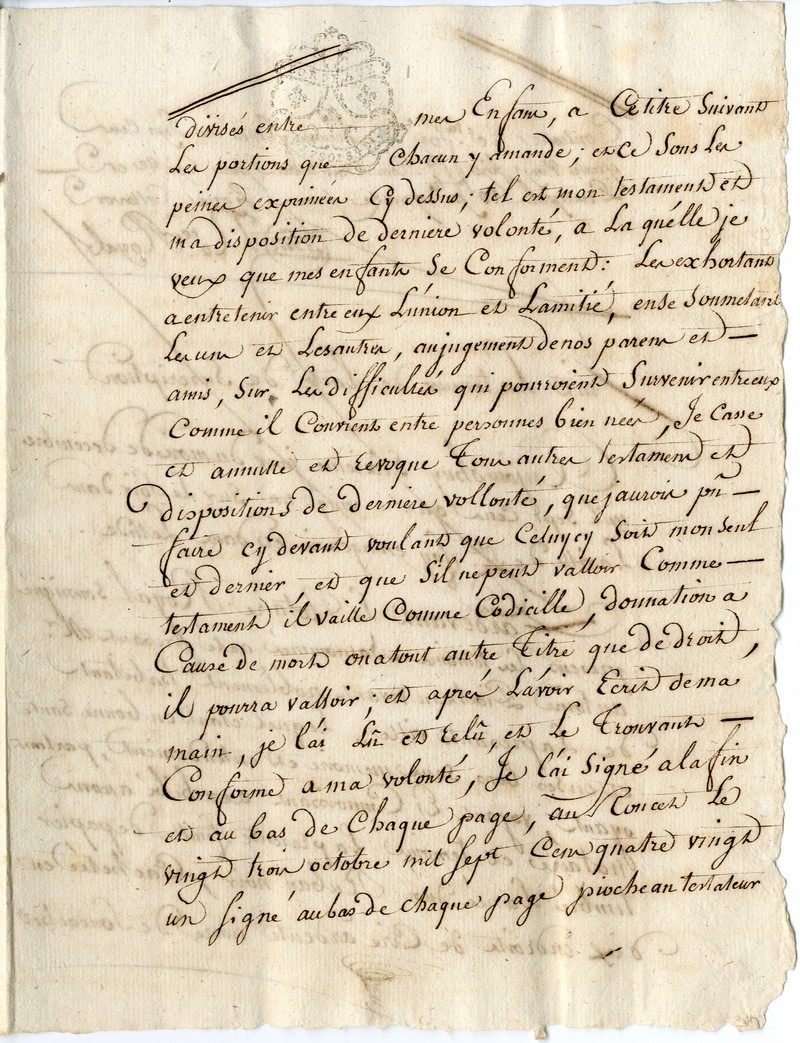 divisés entre mes Enfans, a Cetitre Suivant
Les portions que Chacun y amande; et ce Sous Les
peines exprimées Cy dessus; tel est mon testament et
ma disposition de derniere volonté, a La quélle je
veux que mes enfants Se Conforment: Les exhortant
a entretenir entre eux L'union et Lamitié, en se Soumetant
Les uns et Les autres, au jugement de nos parens et
amis, Sur Les difficultés qui pourroient Survenir entre eux
Comme il Convient entre personnes bien nées, Je Casse
et annulle et revoque Tous autres testamens et
dispositions de derniere vollonté, que jaurois pû
faire cy devant voulant que Celuycy Soit mon Seul
et dernier, et que S'il ne peut valloir Comme
testament il vaille Comme Codicille, donnation a
Cause de mort ou a tout autre Titre que de droit,
il pourra valloir; et aprés L'avoir Ecrit de ma
main, je l'ai Lû et relû, et Le Trouvant
Conforme a ma volonté, Je l'ai Signé a la fin
et au bas de Chaque page, au Poncet Le
vingt trois octobre mil sept Cens quatre vingt
un signé au bas de chaque page piochean testateur